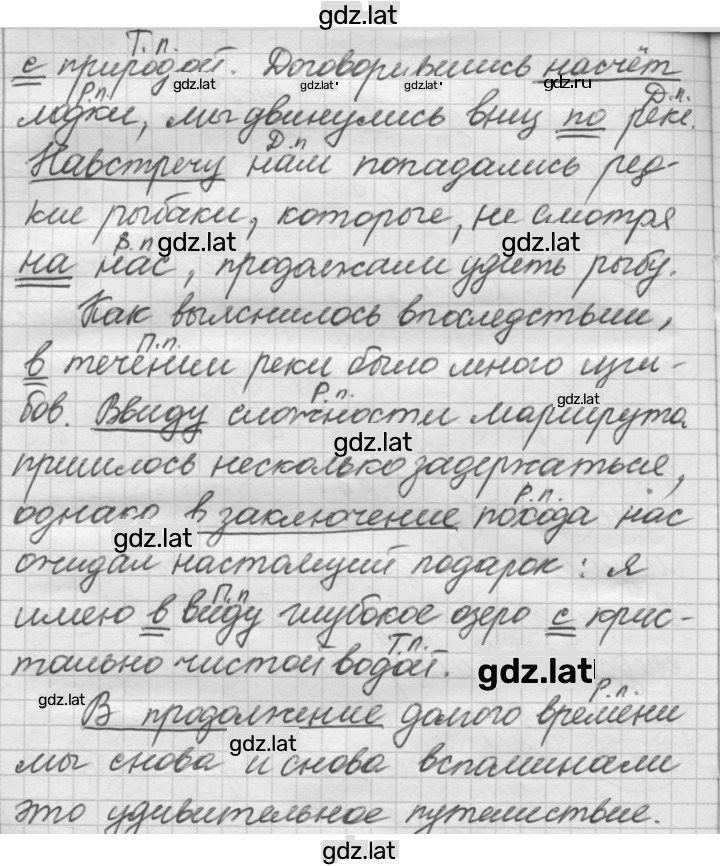 gdz.lat
Т.п.
с природой. Договорившись насчёт
gdz.lat gdz.lat gdz.lat gdz.ru
Р.п. Д.п.
лодки, мы двинулись вниз по реке.
Д.п
Навстречу нам попадались ред-
кие рыбаки, которые, не смотря
В.п gdz.lat gdz.lat
на нас, продолжали удить рыбу.
Как выяснилось впоследствии,
П.п.
в течении реки было много изги-
Р.п. gdz.lat
бов. Ввиду сложности маршрута
gdz.lat
пришлось несколько задержаться,
Р.п.
однако в заключение похода нас
gdz.lat
ожидал настоящий подарок: я
П.п
имею в виду глубокое озеро с крис-
Т.п.
тально чистой водой. gdz.lat
gdz.lat Р.п.
В продолжение долгого времени
gdz.lat
мы снова и снова вспоминали
это удивительное путешествие.
gdz.lat